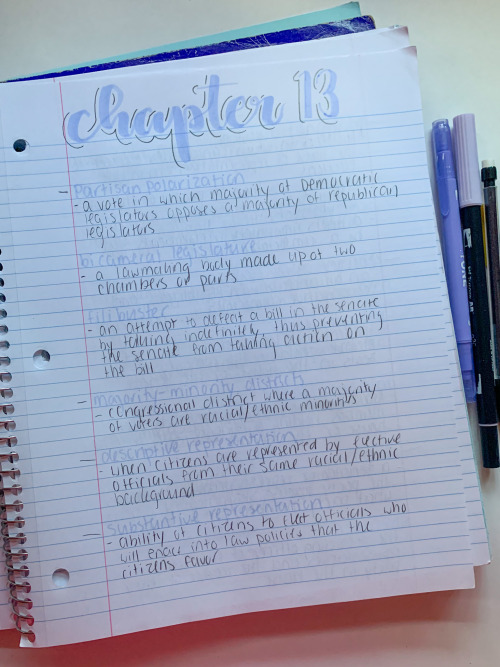 chapter 13
- partisan polarization
- a vote in which majority of Democratic
legislators opposes a majority of republican
legislators
bicameral legislature
- a lawmaking body made up of two
chambers or parts
filibuster
- an attempt to defeat a bill in the senate
by talking indefinitely, thus preventing
the senate from taking action on
the bill
- majority-minority districts
- congressional district where a majority
of voters are racial/ethnic minorities
- descriptive representation
- when citizens are represented by elective
officials from their same racial/ethnic
background
- substantive representation
- ability of citizens to elect officials who
will enact into law policies that the
citizens favor